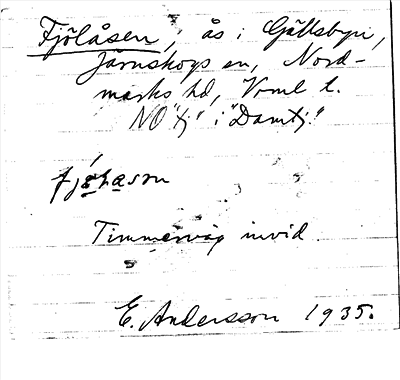 Fjölåsen, ås i Gällsbyn,
Järnskogs sn, Nord-
marks hd, Vrml l.
NO "tj" i "Damtj."
fjø̀ɫasən
Timmerväg invid
E. Andersson 1935.